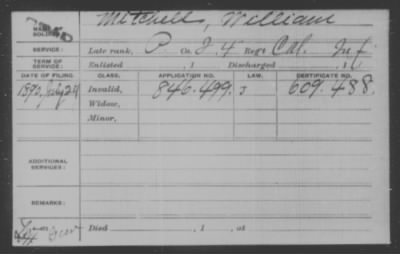 NAME OF SOLDIER: Mitchell, William
SERVICE: Late rank, P. Co. I, 4 Reg't Cal. Inf.
TERM OF SERVICE: Enlisted , 1 Discharged , 1
DATE OF FILING. CLASS. APPLICATION NO. LAW. CERTIFICATE NO.
1890, July 24 Invalid, 846.499. J 609.488.
Widow,
Minor,
ADDITIONAL SERVICES:
REMARKS:
Died , 1 , at